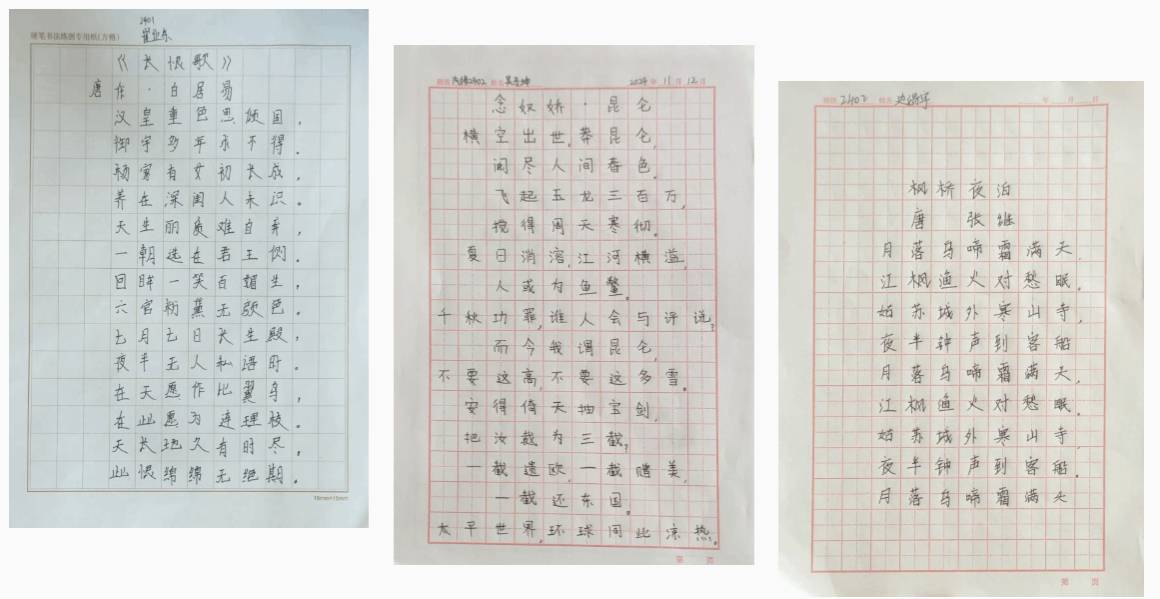 2401
硬笔书法练创专用纸(方格)
《长恨歌》
唐作·白居易
汉皇重色思倾国，
御宇多年求不得。
杨家有女初长成，
养在深闺人未识。
天生丽质难自弃，
一朝选在君王侧。
回眸一笑百媚生，
六宫粉黛无颜色。
七月七日长生殿，
夜半无人私语时。
在天愿作比翼鸟，
在此愿为连理枝。
天长地久有时尽，
此恨绵绵无绝期。
班级 2402 姓名 2024年11月12日
念奴娇·昆仑
横空出世,莽昆仑,
阅尽人间春色。
飞起玉龙三百万,
搅得周天寒彻。
夏日消溶,江河横溢,
人或为鱼鳖。
千秋功罪,谁人会与评说?
而今我谓昆仑,
不要这高,不要这多雪。
安得倚天抽宝剑,
把汝裁为三截?
一截遗欧,一截赠美,
一截还东国。
太平世界,环球同此凉热。
第 页
班级 2402 姓名 年 月 日
枫桥夜泊
唐 张继
月落乌啼霜满天,
江枫渔火对愁眠。
姑苏城外寒山寺,
夜半钟声到客船
月落乌啼霜满天,
江枫渔火对愁眠。
姑苏城外寒山寺,
夜半钟声到客船。
月落乌啼霜满天
第 页